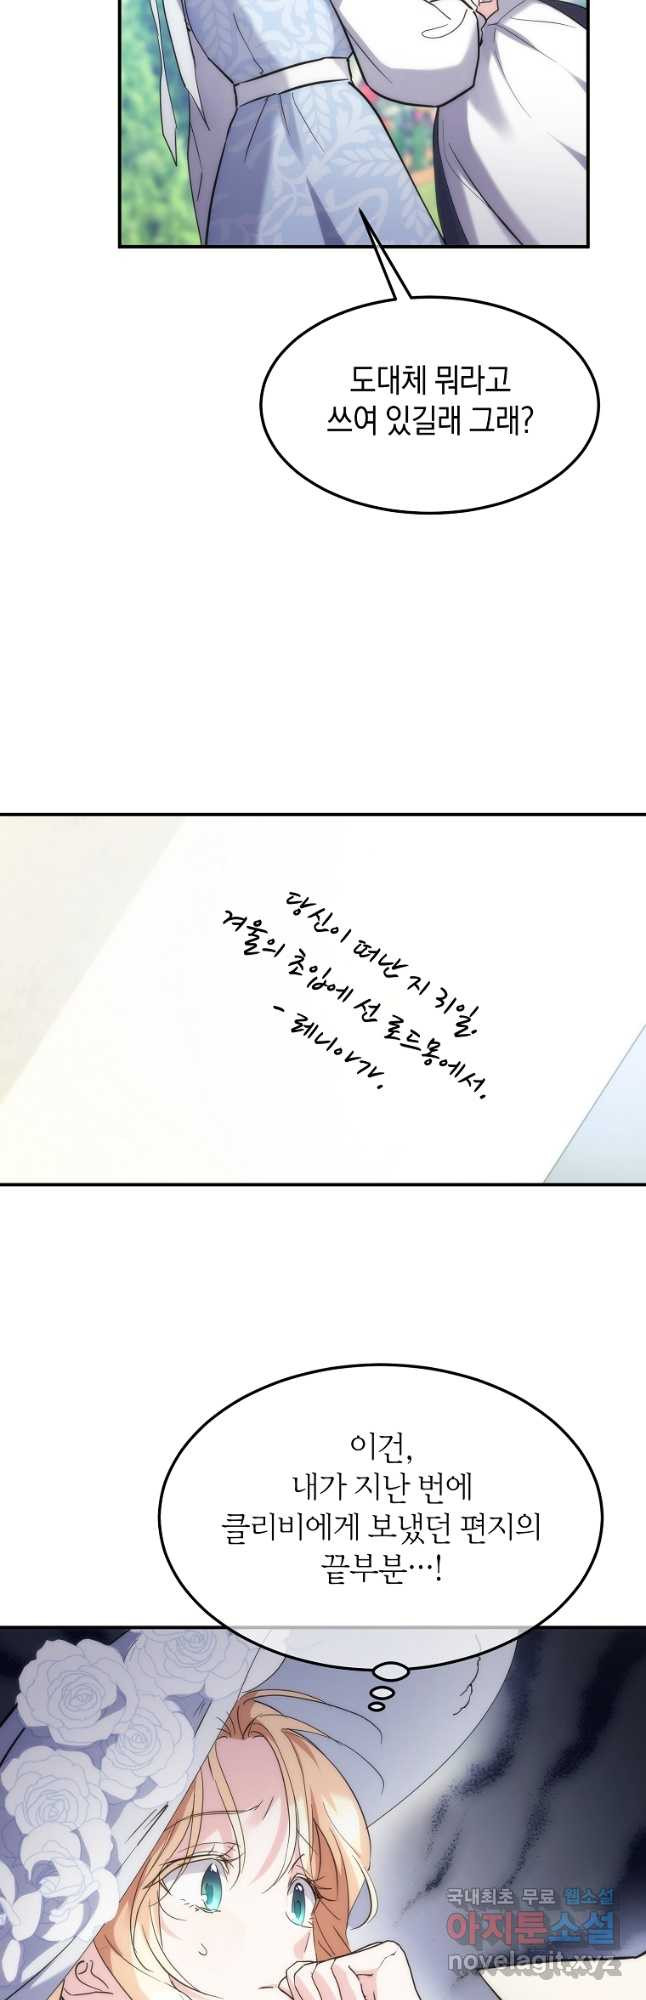 도대체 뭐라고
쓰여 있길래 그래?
당신이 떠난 지 31일.
겨울의 초입에 선 로드몽에서.
- 레니아가.
이건,
내가 지난 번에
클리비에게 보냈던 편지의
끝부분…!
국내최초 무료 웹소설
아지툰소설
novelagit.xyz